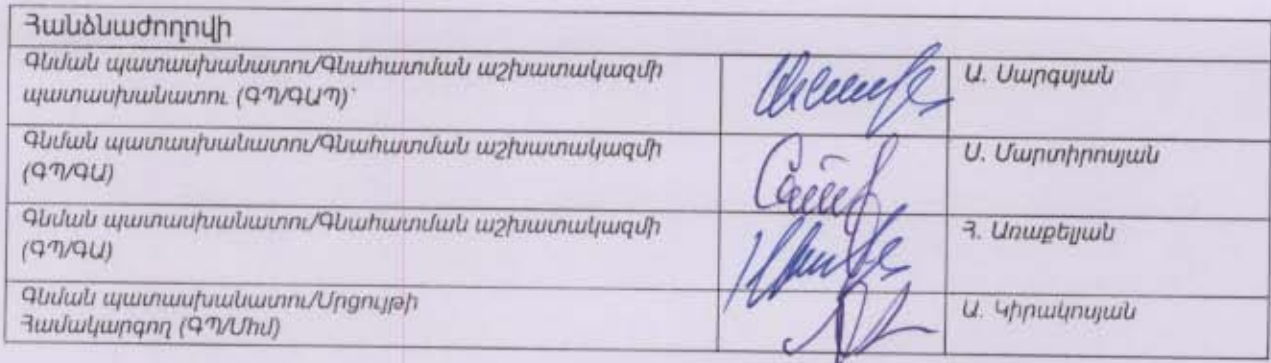 Հանձնաժողովի
Գնման պատասխանատու/Գնահատման աշխատակազմի
պատասխանատու (ԳՊ/ԳԱՊ)՝
Ա. Սարգսյան
Գնման պատասխանատու/Գնահատման աշխատակազմի
(ԳՊ/ԳԱ)
Ս. Մարտիրոսյան
Գնման պատասխանատու/Գնահատման աշխատակազմի
(ԳՊ/ԳԱ)
Հ. Առաքելյան
Գնման պատասխանատու/Մրցույթի
Համակարգող (ԳՊ/Միմ)
Ա. Կիրակոսյան